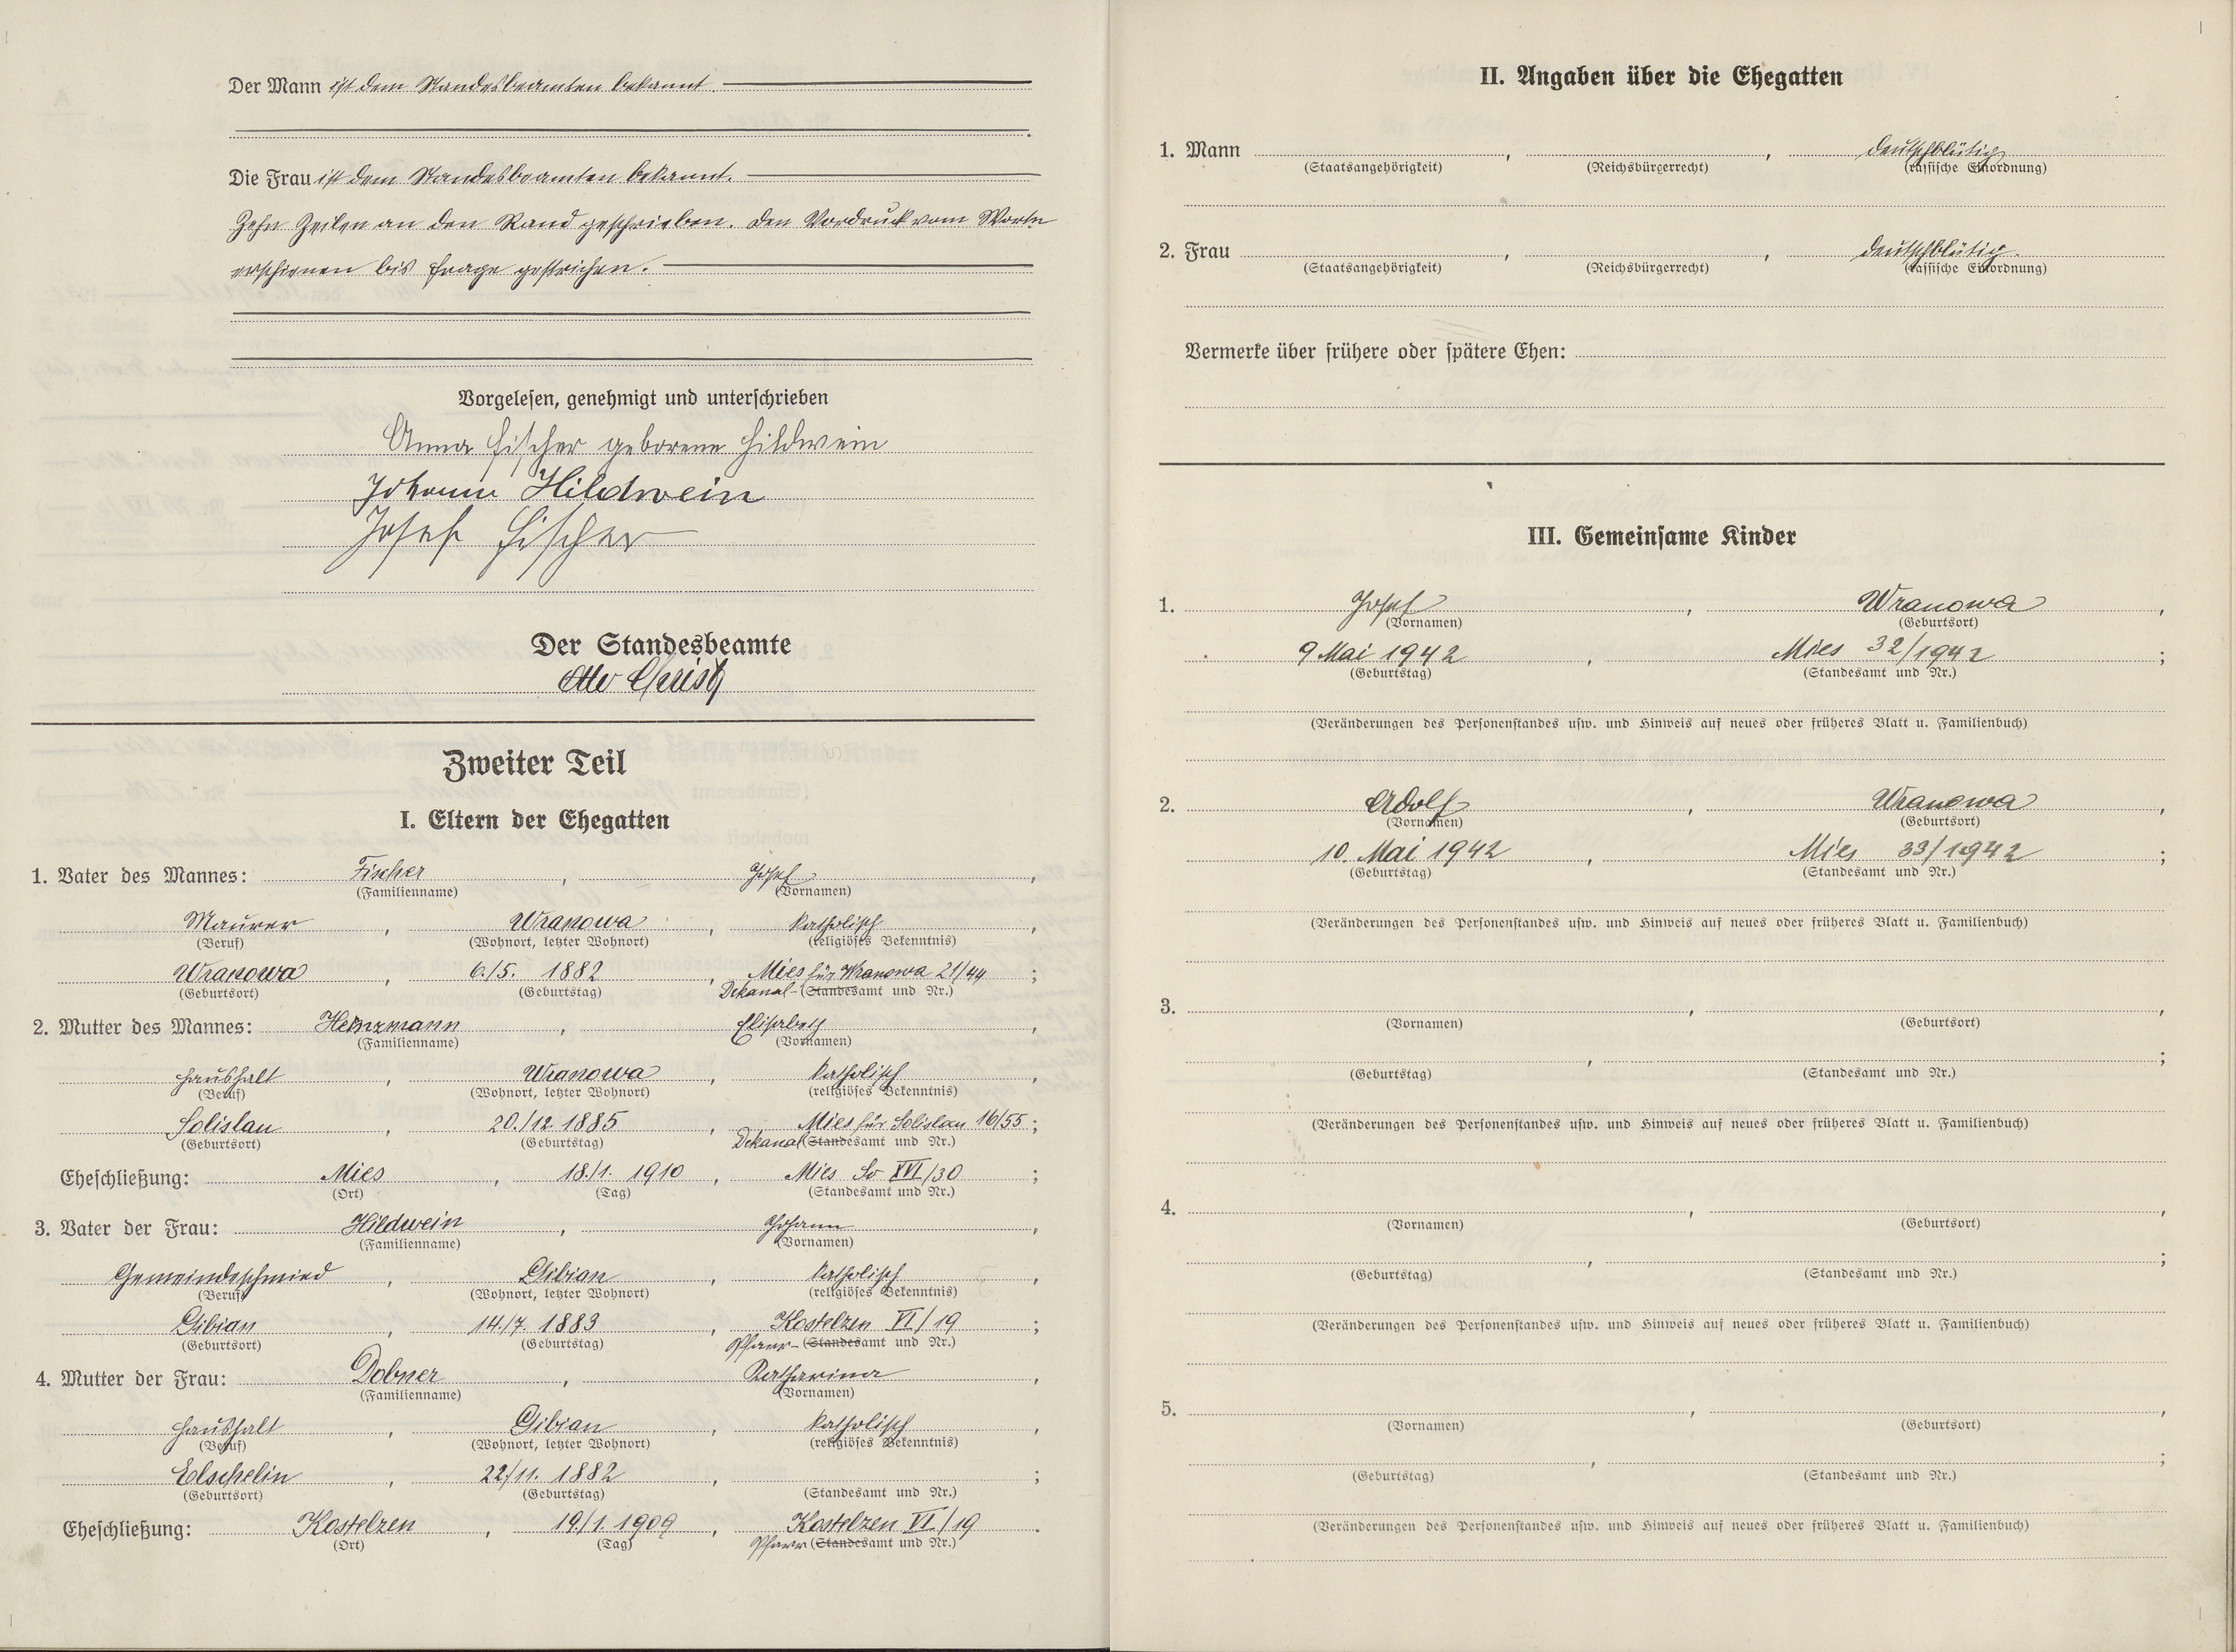 Der Mann ist dem Standesbeamten bekannt.
Die Frau ist dem Standesbeamten bekannt.
Zehn Zeilen an den Rand geschrieben. Den Vordruck vom Worte
erschienen bis Frage gestrichen.
Vorgelesen, genehmigt und unterschrieben
Anna Fischer geborene Hildwein
Johann Hildwein
Josef Fischer
Der Standesbeamte
Zweiter Teil
I. Eltern der Ehegatten
1. Vater des Mannes: Fischer, Josef,
(Familienname) (Vornamen)
Maurer, Wranowa, katholisch,
(Beruf) (Wohnort, letzter Wohnort) (religiöses Bekenntnis)
Wranowa, 6./5. 1882, Mies für Wranowa 21/44;
(Geburtsort) (Geburtstag) Dekanal- (Standesamt und Nr.)
2. Mutter des Mannes: Heinzmann, Elisabeth,
(Familienname) (Vornamen)
Haushalt, Wranowa, katholisch,
(Beruf) (Wohnort, letzter Wohnort) (religiöses Bekenntnis)
Solislau, 20./12. 1885, Mies für Solislau 16/55;
(Geburtsort) (Geburtstag) Dekanal (Standesamt und Nr.)
Eheschließung: Mies, 18./1. 1910, Mies So XVI/30;
(Ort) (Tag) (Standesamt und Nr.)
3. Vater der Frau: Hildwein, Johann,
(Familienname) (Vornamen)
Gemeindeschmied, Gibian, katholisch,
(Beruf) (Wohnort, letzter Wohnort) (religiöses Bekenntnis)
Gibian, 14./7. 1883, Kostelzen VI/19;
(Geburtsort) (Geburtstag) Pfarr- (Standesamt und Nr.)
4. Mutter der Frau: Dobner, Katharina,
(Familienname) (Vornamen)
Haushalt, Gibian, katholisch,
(Beruf) (Wohnort, letzter Wohnort) (religiöses Bekenntnis)
Elschelin, 22./11. 1882, ;
(Geburtsort) (Geburtstag) (Standesamt und Nr.)
Eheschließung: Kostelzen, 19./1. 1909, Kostelzen VI/19.
(Ort) (Tag) Pfarr (Standesamt und Nr.)
II. Angaben über die Ehegatten
1. Mann , , deutschblütig
(Staatsangehörigkeit) (Reichsbürgerrecht) (rassische Einordnung)
2. Frau , , deutschblütig.
(Staatsangehörigkeit) (Reichsbürgerrecht) (rassische Einordnung)
Vermerke über frühere oder spätere Ehen:
III. Gemeinsame Kinder
1. Josef, Wranowa,
(Vornamen) (Geburtsort)
9 Mai 1942, Mies 32/1942;
(Geburtstag) (Standesamt und Nr.)
(Veränderungen des Personenstandes usw. und Hinweis auf neues oder früheres Blatt u. Familienbuch)
2. Adolf, Wranowa,
(Vornamen) (Geburtsort)
10. Mai 1942, Mies 33/1942;
(Geburtstag) (Standesamt und Nr.)
(Veränderungen des Personenstandes usw. und Hinweis auf neues oder früheres Blatt u. Familienbuch)
3. , ,
(Vornamen) (Geburtsort)
, ;
(Geburtstag) (Standesamt und Nr.)
(Veränderungen des Personenstandes usw. und Hinweis auf neues oder früheres Blatt u. Familienbuch)
4. , ,
(Vornamen) (Geburtsort)
, ;
(Geburtstag) (Standesamt und Nr.)
(Veränderungen des Personenstandes usw. und Hinweis auf neues oder früheres Blatt u. Familienbuch)
5. , ,
(Vornamen) (Geburtsort)
, ;
(Geburtstag) (Standesamt und Nr.)
(Veränderungen des Personenstandes usw. und Hinweis auf neues oder früheres Blatt u. Familienbuch)